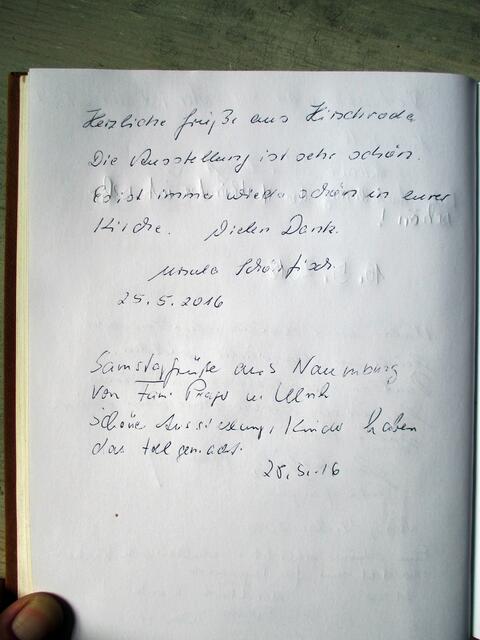 Herzliche Grüße aus Hirschroda
Die Ausstellung ist sehr schön.
Es ist immer wieder schön in eurer
Kirche. Vielen Dank.
Ursula
25.5.2016
Samstagsgrüße aus Naumburg
von Fam. u. Ulrik
schöne Ausstellung, Kinder haben
das toll gemacht.
28.5.16